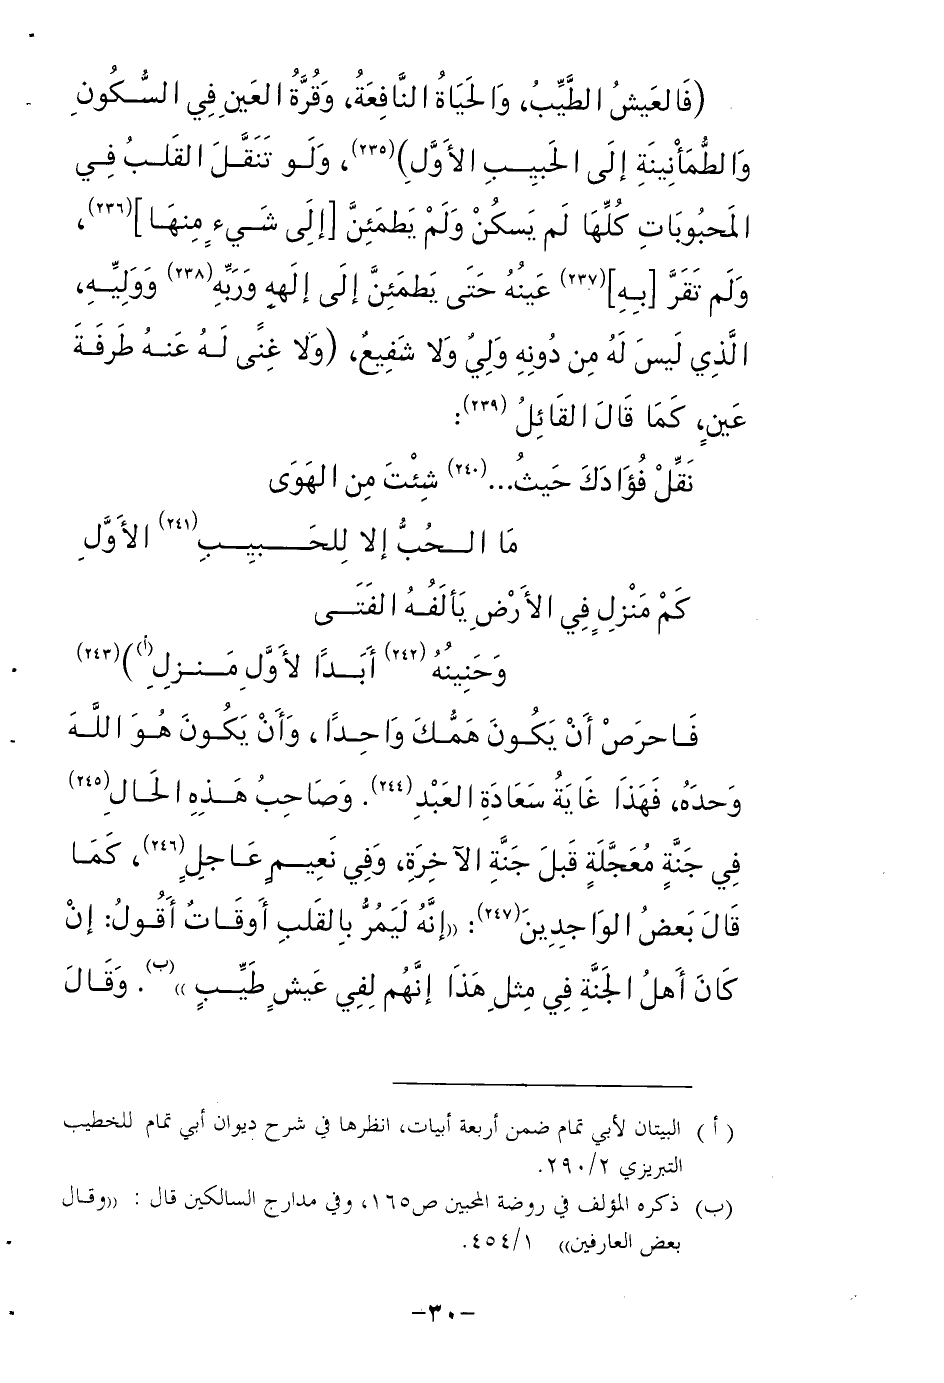 (فَالعَيشُ الطَّيِّبُ، وَالحَيَاةُ النَّافِعَةُ، وَقُرَّةُ العَينِ فِي السُّكُونِ
وَالطُّمَأنِينَةِ إِلَى الحَبِيبِ الأَوَّلِ)(٢٣٥)، وَلَو تَنَقَّلَ القَلبُ فِي
المَحبُوبَاتِ كُلِّهَا لَم يَسكُنْ وَلَمْ يَطمَئِنَّ [إِلَى شَيءٍ مِنهَا](٢٣٦)،
وَلَم تَقَرَّ [بِهِ](٢٣٧) عَينُهُ حَتَى يَطمَئِنَّ إِلَى إِلَهِهِ وَرَبِّهِ(٢٣٨) وَوَلِيِّهِ،
الَّذِي لَيسَ لَهُ مِن دُونِهِ وَلِيٌ وَلا شَفِيعٌ، (وَلا غِنًى لَهُ عَنهُ طَرفَةَ
عَينٍ، كَمَا قَالَ القَائِلُ (٢٣٩):
نَقِّلْ فُؤَادَكَ حَيثُ...(٢٤٠) شِئْتَ مِن الهَوَى
مَا الحُبُّ إِلا لِلحَبِيبِ(٢٤١) الأَوَّلِ
كَمْ مَنْزِلٍ فِي الأَرْضِ يَألَفُهُ الفَتَى
وَحَنِينُهُ(٢٤٢) أَبَدًا لأَوَّلِ مَنزِلِ(أ))(٢٤٣)
فَاحرَصْ أَنْ يَكُونَ هَمُّكَ وَاحِدًا، وَأَنْ يَكُونَ هُوَ اللَّهَ
وَحدَهُ، فَهَذَا غَايَةُ سَعَادَةِ العَبْدِ(٢٤٤). وَصَاحِبُ هَذِهِ الحَالِ(٢٤٥)
فِي جَنَّةٍ مُعَجَّلَةٍ قَبلَ جَنَّةِ الآخِرَةِ، وَفِي نَعِيمٍ عَاجِلٍ(٢٤٦)، كَمَا
قَالَ بَعضُ الوَاجِدِينَ(٢٤٧): ((إِنَّهُ لَيَمُرُّ بِالقَلبِ أَوقَاتٌ أَقُولُ: إِنْ
كَانَ أَهلُ الجَنَّةِ فِي مِثلِ هَذَا إِنَّهُم لِفِي عَيشٍ طَيِّبٍ))(ب). وَقَالَ
(أ) البيتان لأبي تمام ضمن أربعة أبيات، انظرها في شرح ديوان أبي تمام للخطيب
التبريزي ٢٩٠/٢.
(ب) ذكره المؤلف في روضة المحبين ص١٦٥، وفي مدارج السالكين قال : ((وقال
بعض العارفين)) ٤٥٤/١.
-٣٠-